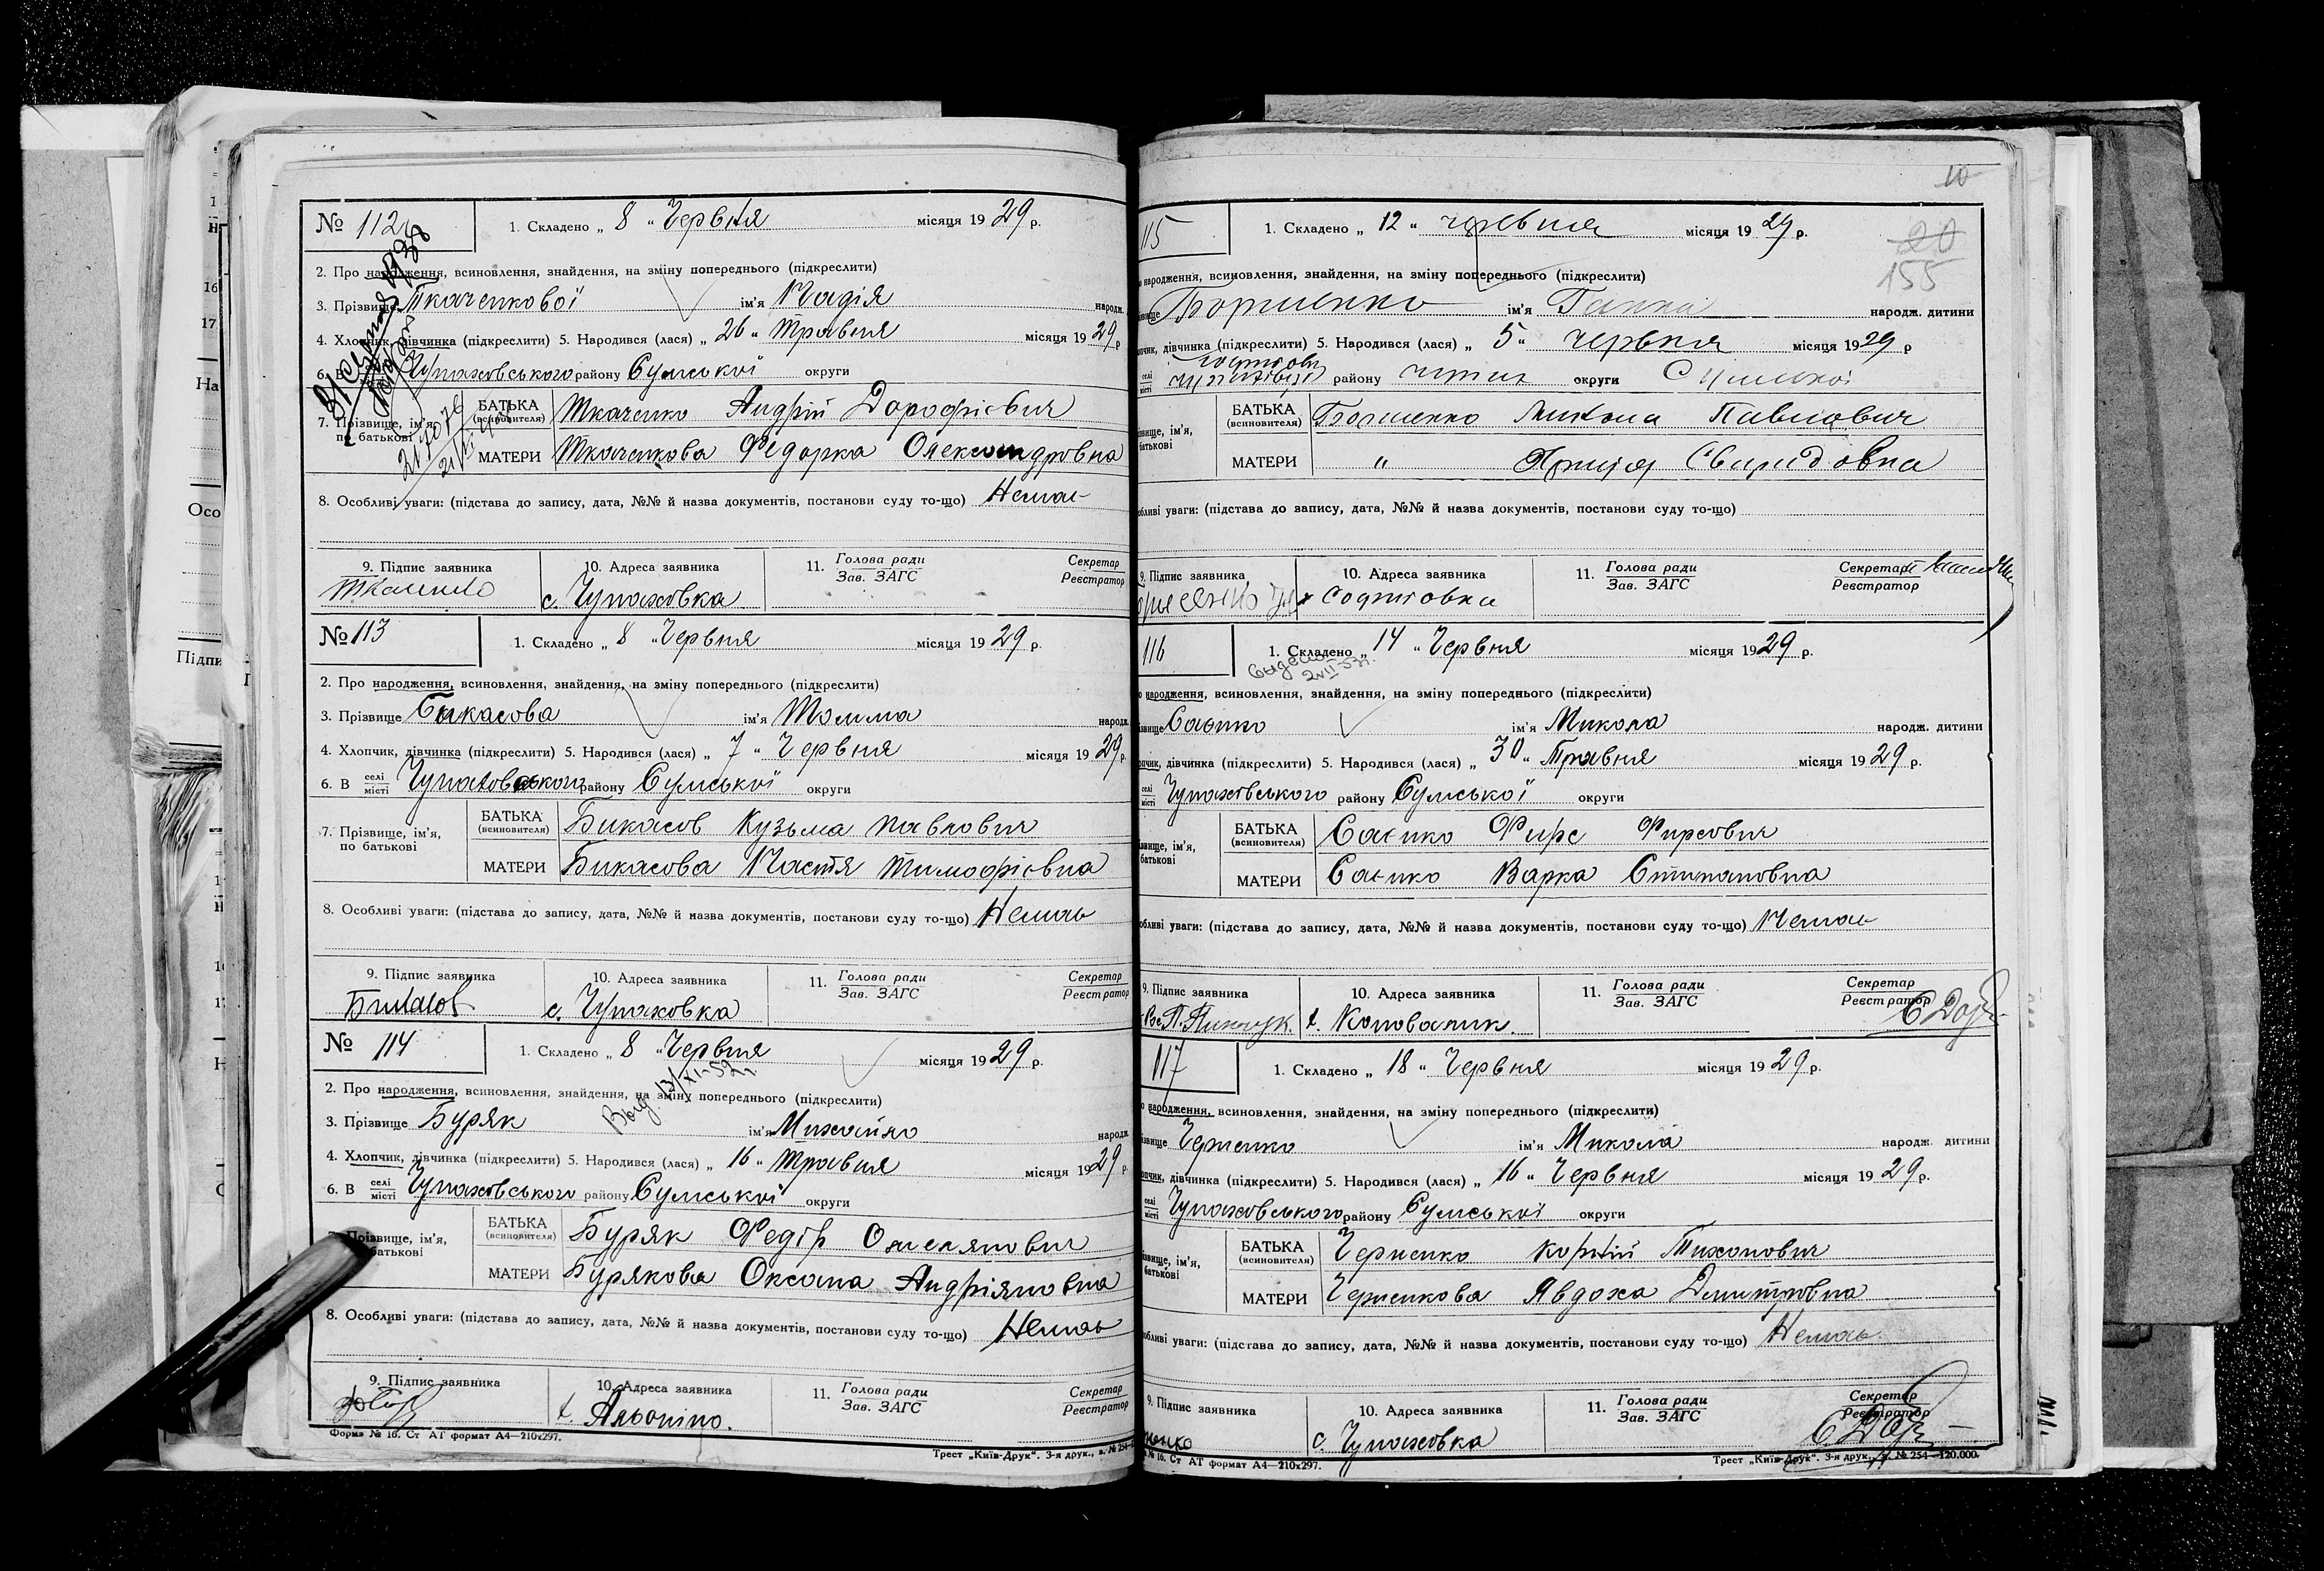 № 112
1. Складено „ 8 “ Червня місяця 1929 р.
2. Про народження, всиновлення, знайдення, на зміну попереднього (підкреслити)
3. Прізвище Ткаченкової ім'я Надія народж.
4. Хлопчик, дівчинка (підкреслити) 5. Народився (лася) „ 26 “ Травня місяця 1929 р
6. В Чупаховського району Сумської округи
7. Прізвище, ім'я, по батькові
БАТЬКА (всиновителя) Ткаченко Андрій Дорофієвич
МАТЕРИ Ткаченкова Федорка Олександровна
8. Особливі уваги: (підстава до запису, дата, №№ й назва документів, постанови суду то-що) Немає
9. Підпис заявника 10. Адреса заявника 11. Голова ради Зав. ЗАГС Секретар Реєстратор
Ткаченко с. Чупаховка
№ 113
1. Складено „ 8 “ Червня місяця 1929 р.
2. Про народження, всиновлення, знайдення, на зміну попереднього (підкреслити)
3. Прізвище Бикасова ім'я Томма народж.
4. Хлопчик, дівчинка (підкреслити) 5. Народився (лася) „ 7 “ Червня місяця 1929 р.
6. В селі місті Чупаховського району Сумської округи
7. Прізвище, ім'я, по батькові
БАТЬКА (всиновителя) Бикасов Кузьма Павлович
МАТЕРИ Бикасова Настя Тимофієвна
8. Особливі уваги: (підстава до запису, дата, №№ й назва документів, постанови суду то-що) Немає
9. Підпис заявника 10. Адреса заявника 11. Голова ради Зав. ЗАГС Секретар Реєстратор
Бикасов с. Чупаховка
№ 114
1. Складено „ 8 “ Червня місяця 1929 р.
2. Про народження, всиновлення, знайдення, на зміну попереднього (підкреслити)
Выд. 13/XI-59
3. Прізвище Буряк ім'я Михайло народж.
4. Хлопчик, дівчинка (підкреслити) 5. Народився (лася) „ 16 “ Травня місяця 1929 р.
6. В селі місті Чупаховського району Сумської округи
Прізвище, ім'я, батькові
БАТЬКА (всиновителя) Буряк Федір Омелянович
МАТЕРИ Бурякова Оксана Андріяновна
8. Особливі уваги: (підстава до запису, дата, №№ й назва документів, постанови суду то-що) Немає
9. Підпис заявника 10. Адреса заявника 11. Голова ради Зав. ЗАГС Секретар Реєстратор
Форма № 16. Ст АТ формат А4—210х297.
Трест „Київ-Друк“. 3-я друк., з. № 254
10
20
155
115
1. Складено „ 12 “ червня місяця 1929 р.
народження, всиновлення, знайдення, на зміну попереднього (підкреслити)
ім'я Ганна народж. дитини
дівчинка (підкреслити) 5. Народився (лася) „ 5 “ червня місяця 1929 р
селі місті району округи Сумської
БАТЬКА (всиновителя) Микола Павлович
МАТЕРИ " Свиридовна
уваги: (підстава до запису, дата, №№ й назва документів, постанови суду то-що)
9. Підпис заявника 10. Адреса заявника 11. Голова ради Зав. ЗАГС Секретар Реєстратор
Софиговка
116
1. Складено „ 14 “ Червня місяця 1929 р.
народження, всиновлення, знайдення, на зміну попереднього (підкреслити)
Саєнко ім'я Микола народж. дитини
дівчинка (підкреслити) 5. Народився (лася) „ 30 “ Травня місяця 1929 р.
селі місті Чупаховського району Сумської округи
БАТЬКА (всиновителя) Саєнко Фирс Фирсович
МАТЕРИ Саєнко Варка Степановна
уваги: (підстава до запису, дата, №№ й назва документів, постанови суду то-що) Немає
9. Підпис заявника 10. Адреса заявника 11. Голова ради Зав. ЗАГС Секретар Реєстратор
117
1. Складено „ 18 “ Червня місяця 1929 р.
народження, всиновлення, знайдення, на зміну попереднього (підкреслити)
Черненко ім'я Микола народж. дитини
дівчинка (підкреслити) 5. Народився (лася) „ 16 “ Червня місяця 1929 р.
селі місті Чупаховського району Сумської округи
БАТЬКА (всиновителя) Черненко Корній Тихонович
МАТЕРИ Черненкова Явдоха Дмитровна
уваги: (підстава до запису, дата, №№ й назва документів, постанови суду то-що) Немає
9. Підпис заявника 10. Адреса заявника 11. Голова ради Зав. ЗАГС Секретар Реєстратор
с. Чупаховка
№ 16. Ст АТ формат А4—210х297.
Трест „Київ-Друк“. 3-я друк., з. № 254—120.000.